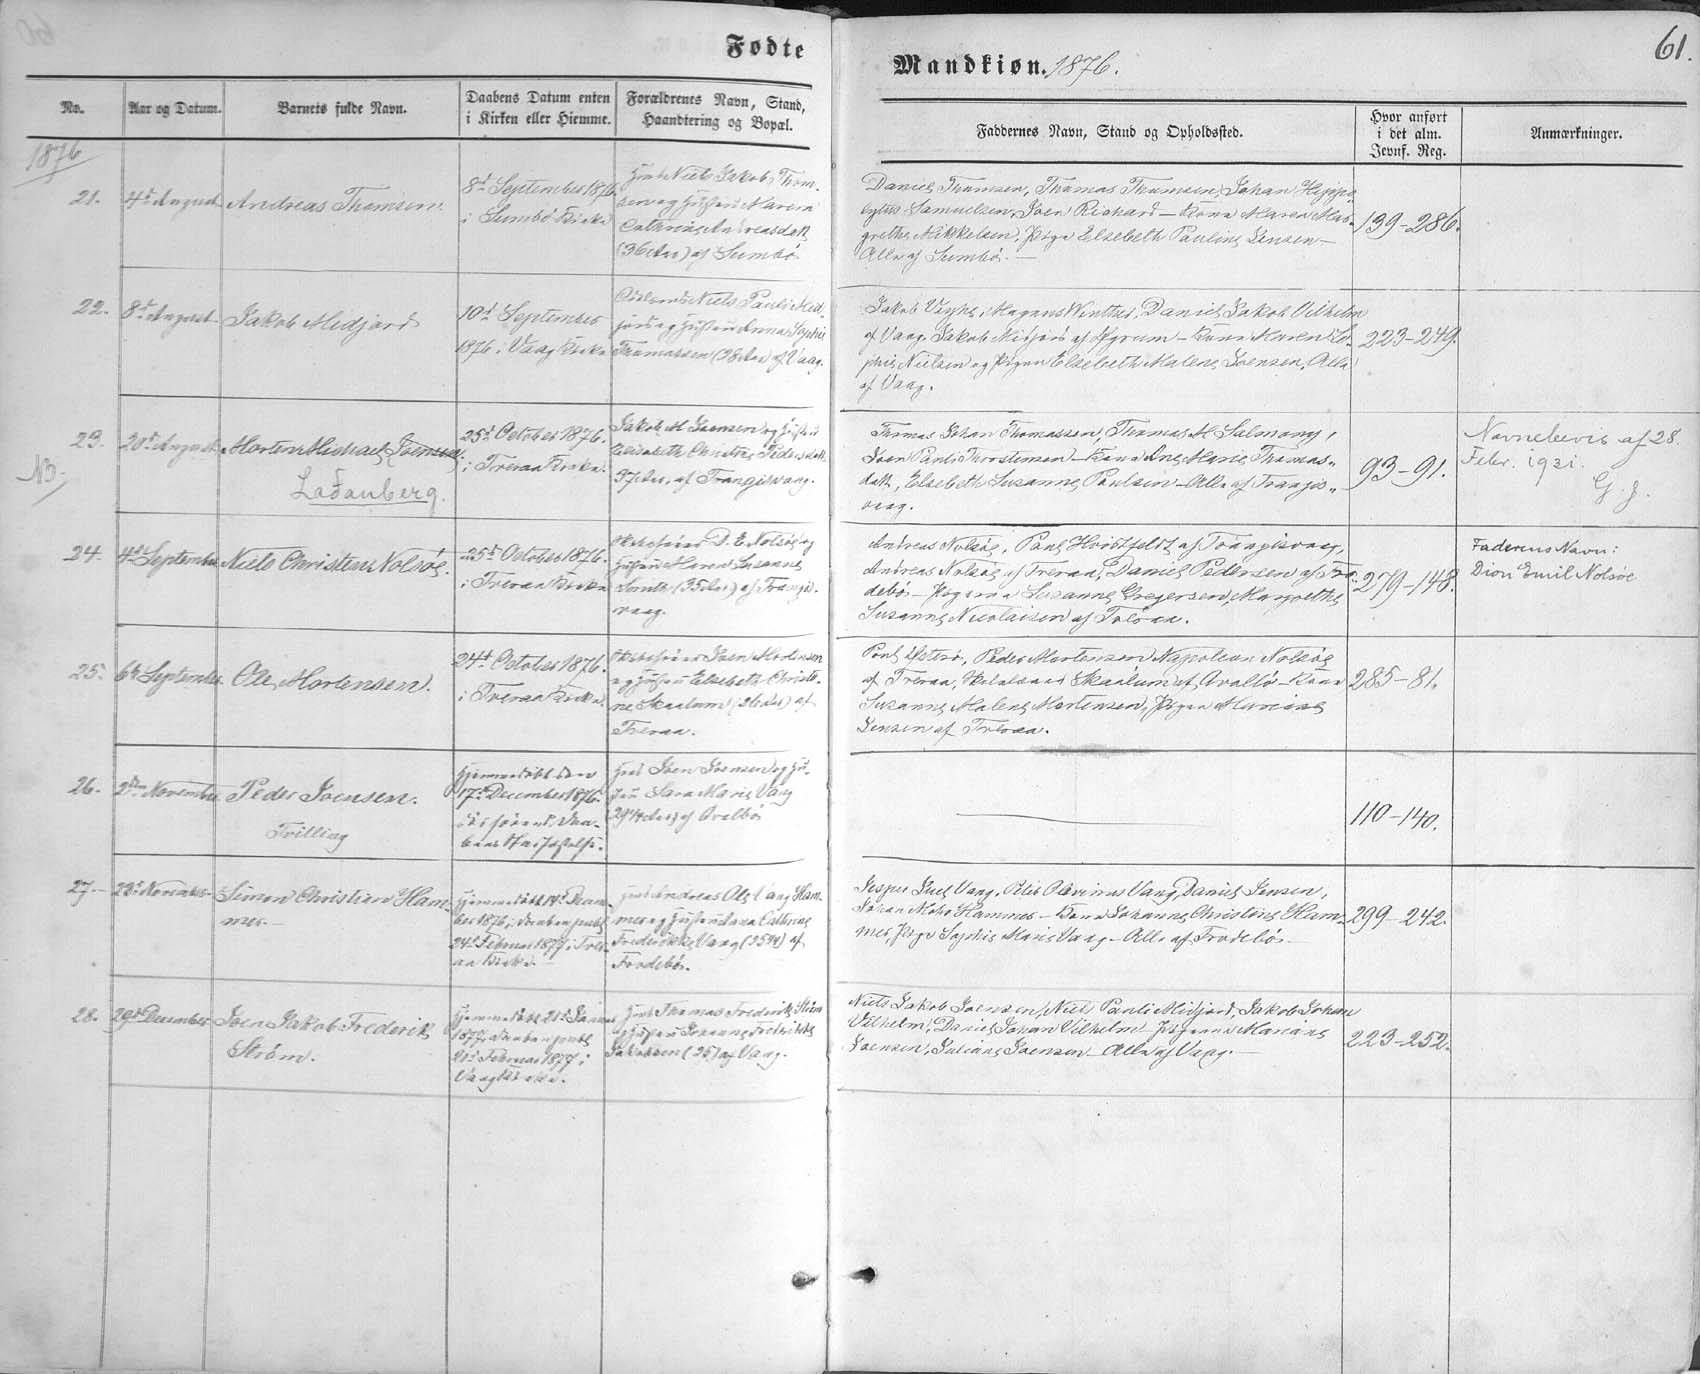 Fødte
Mandkiøn. 1876.
61.
No.
Aar og Datum.
Barnets fulde Navn.
Daabens Datum enten
i Kirken eller Hiemme.
Forældrenes Navn, Stand,
Haandtering og Bopæl.
Faddernes Navn, Stand og Opholdssted.
Hvor anført
i det alm.
Jevnf. Reg.
Anmærkninger.
1876
21.
4d August
Andreas Thomsen.
8d September 1876
i Sumbö Kirke
Niels Jakob Thom-
sen og Hustru Maren
Cathrine Andreasdatt
(36 Aar) af Sumbö
Daniel Thomsen, Thomas Thomsen, Johan
Samuelsen, Joen Richard – Kone Maren Mar-
grethe Mikkelsen, Pige Elsebeth Pauline Jensen –
Alle af Sumbö. –
139–286.
22.
8d August
Jakob Midjord
10d September
1876 i Vaag Kirke
Niels Pauli Mid-
jord og Hustru Anna Sophie
Thomassen (38 Aar) af Vaag.
Jakob Vejhe, Magnus Winther, Daniel Jakob Vilhelm
af Vaag, Jakob Midjord af – Kone Maren So-
phie Nielsen og Pigen Elsebeth Malene Joensen, Alle
af Vaag.
223–249.
23.
NB.
20d August
Morten Michael Joensen.
Ladanberg.
25d October 1876.
i Tveraa Kirke.
Jakob M Joensen og Hustru
Elisabeth Christine Pedersdatt
37 Aar, af Trangisvaag.
Thomas Johan Thomassen, Thomas M. Salmony,
Joen Pauli Thorsteinsen – Kone Ane Marie Thomas-
datt, Elsebeth Susanne Poulsen – Alle af Trangis-
vaag.
93–91.
Navnebevis af 28.
Febr. 1921.
G. J.
24.
4d September
Niels Christian Nolsöe.
25d October 1876.
i Tveraa Kirke
D. E. Nolsöe og
Hustru Maren Susanne
Smith (35 Aar) af Trangis-
vaag.
Andreas Nolsöe, Poul af Trangisvaag,
Andreas Nolsöe af Tveraa, Daniel Pedersen af Fro-
debö – Pigerne Susanne Gregersen, Margrethe
Susanne Nicolaisen af Tveraa.
279–148.
Faderens Navn:
Dion Emil Nolsöe
25.
6te September
Ole Mortensen.
24d October 1876.
i Tveraa Kirke.
Joen Mortensen
og Hustru Elsebeth Christi-
ne Skaalum (26 Aar) af
Tveraa.
Poul Peder Mortensen Napoleon Nolsöe
af Tveraa, Skaalum af Qvalbö – Kone
Susanne Malene Mortensen, Pigen Mariane
Jensen af Tveraa.
285–81.
26.
2den November
Peder Joensen.
Tvilling
Hjemmedöbt den
17d December 1876.
Joen Joensen og Hu-
stru Sara Marie Vang
29¼ Aar) af Qvalbö
110–140.
27.
22d November
Simon Christian Ham-
mer.
Hjemmedöbt 14d Decem-
ber 1876, Daaben publ.
24d Februar 1877 i Tver-
aa Kirke. –
Andreas Ole Vang Ham-
mer og Hustru Cathrine
Frederikke Vang (25¾) af
Frodebö.
Jesper Juel Vang, Daniel Jensen,
Johan Mohr Hammer – Kone Johanne Christine Ham-
mer, Pige Sophie Marie Vang – Alle af Frodebö
299–242.
28.
29d December
Joen Jakob Frederik
Ström.
Hjemmedöbt 21d Januar
1877, Daaben publ.
21d Februar 1877 i
Vaag Kirke.
Thomas Frederik Ström
og Hustru Johanne Fredrikke
Jakobsen (25) af Vaag.
Niels Jakob Joensen, Niels Pauli Midjord, Jakob Johan
Vilhelm, Daniel Johan Vilhelm – Pigerne Mariane
Joensen, Juliane Joensen – Alle af Vaag. –
223–252.